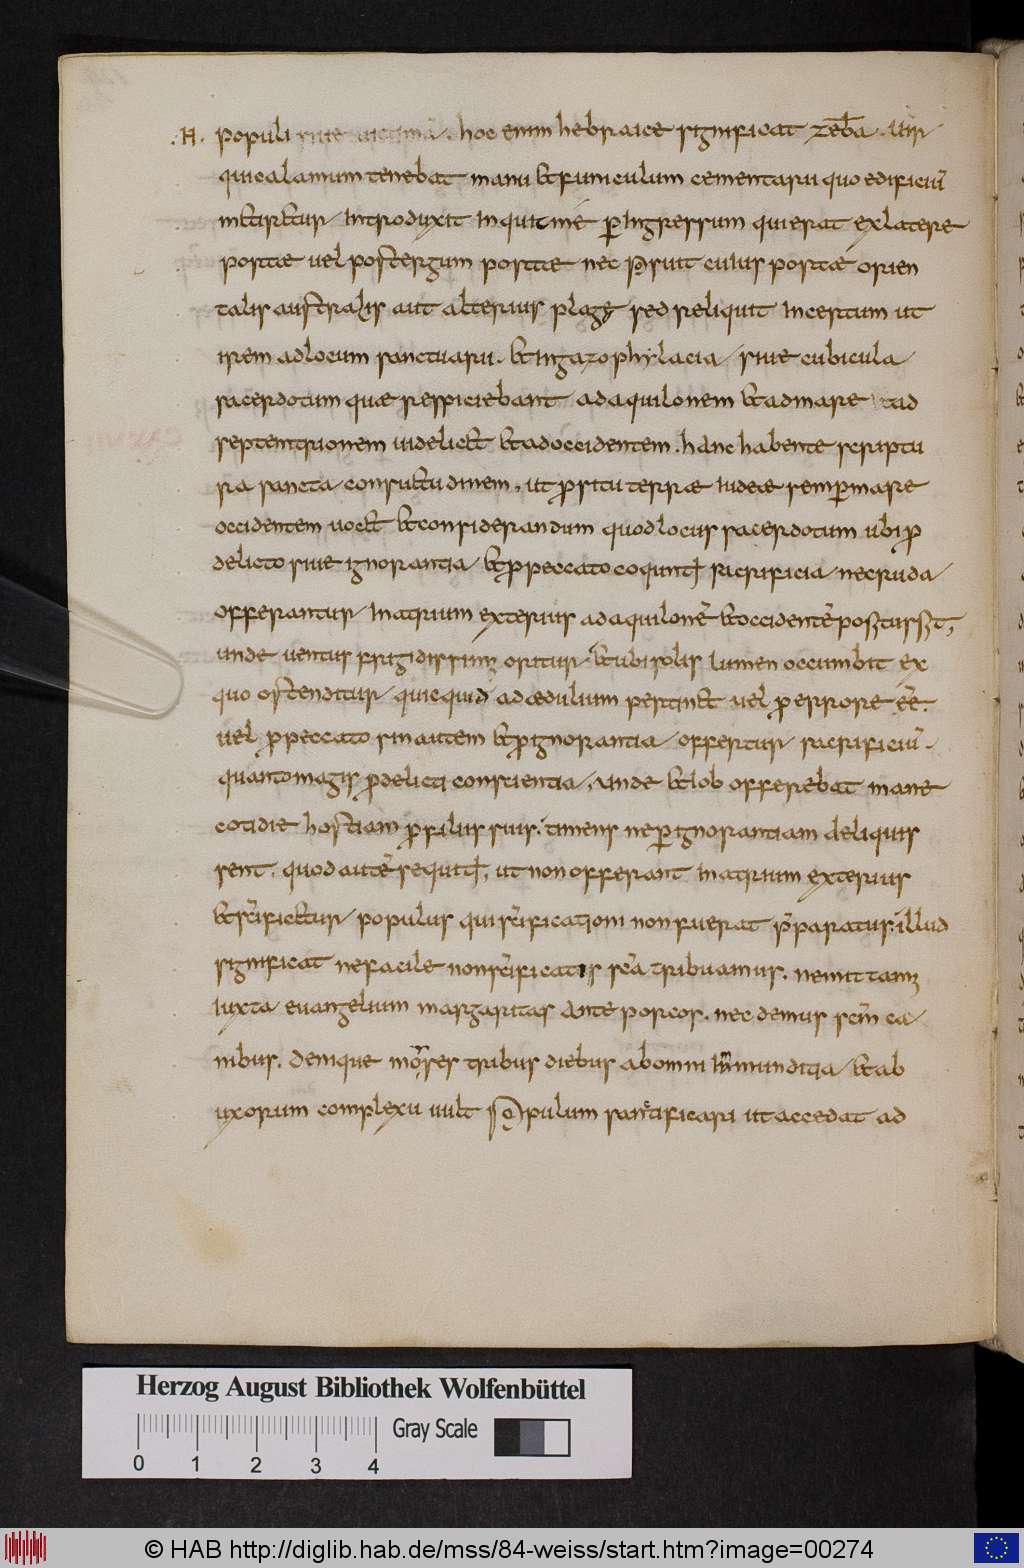 .H. populi siue uictima. hoc enim hebraice significat zeba. uir
qui calamum tenebat manu et funiculum cementarii quo edificiū
metiretur introduxit inquit me ꝑ ingressum qui erat ex latere
portae uel post tergum portae nec p̄suit cuius portae orien
talis australis aut alterius plagę sed reliquit incertum ut
irem ad locum sanctuarii. et in gazophylacia siue cubicula
sacerdotum quae respiciebant ad aquilonem et ad mare ad
septentrionem uidelicet et ad occidentem. hanc habente scriptu
ra sancta consuetudinem, ut ꝓ situ terrae iudeae semꝑ mare
occidentem uocet et considerandum quod locus sacerdotum ubi ꝓ
delicto siue ignorantia et ꝓ peccato coquunt̄ sacrificia nec ruda
offerantur in atrium exterius ad aquilonē et occidentē
unde uentus frigidissimꝫ oritur et ubi solis lumen occumbit ex
quo ostenditur quicquid ad aedulium pertinet uel ꝓ errore eē.
uel ꝓ peccato sin autem et ꝓ ignorantia offertur sacrificiū.
quanto magis ꝓ delicti conscientia, unde et iob offerebat mane
cotidie hostiam ꝓ filiis suis. timens ne ꝑ ignorantiam deliquis
sent. quod autē sequit̄, ut non offerant in atrium exterius
et sc̄ificetur populus qui sc̄ificationi non fuerat p̄paratus. illud
significat ne facile non sc̄ificatis sc̄a tribuamus. ne mittamꝫ
iuxta euangelium margaritas ante porcos. nec demus sc̄m ca
nibus. denique moyses tribus diebus ab omni immunditia et ab
uxorum complexu uult populum sanctificari ut accedat ad
Herzog August Bibliothek Wolfenbüttel
Gray Scale
0 1 2 3 4
© HAB http://diglib.hab.de/mss/84-weiss/start.htm?image=00274